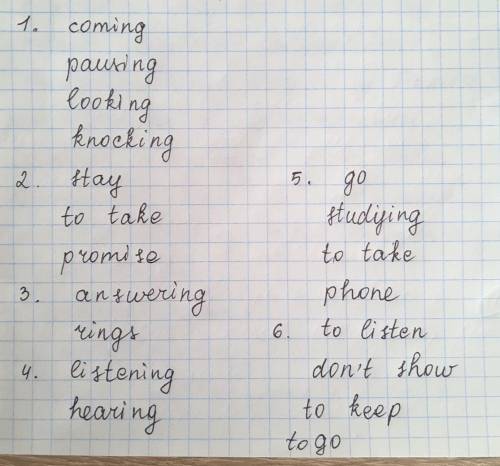 1. coming
pausing
looking
knocking
2. stay
to take
promise
3. answering
rings
4. listening
hearing
5. go
studying
to take
phone
6. to listen
don't show
to keep
to go